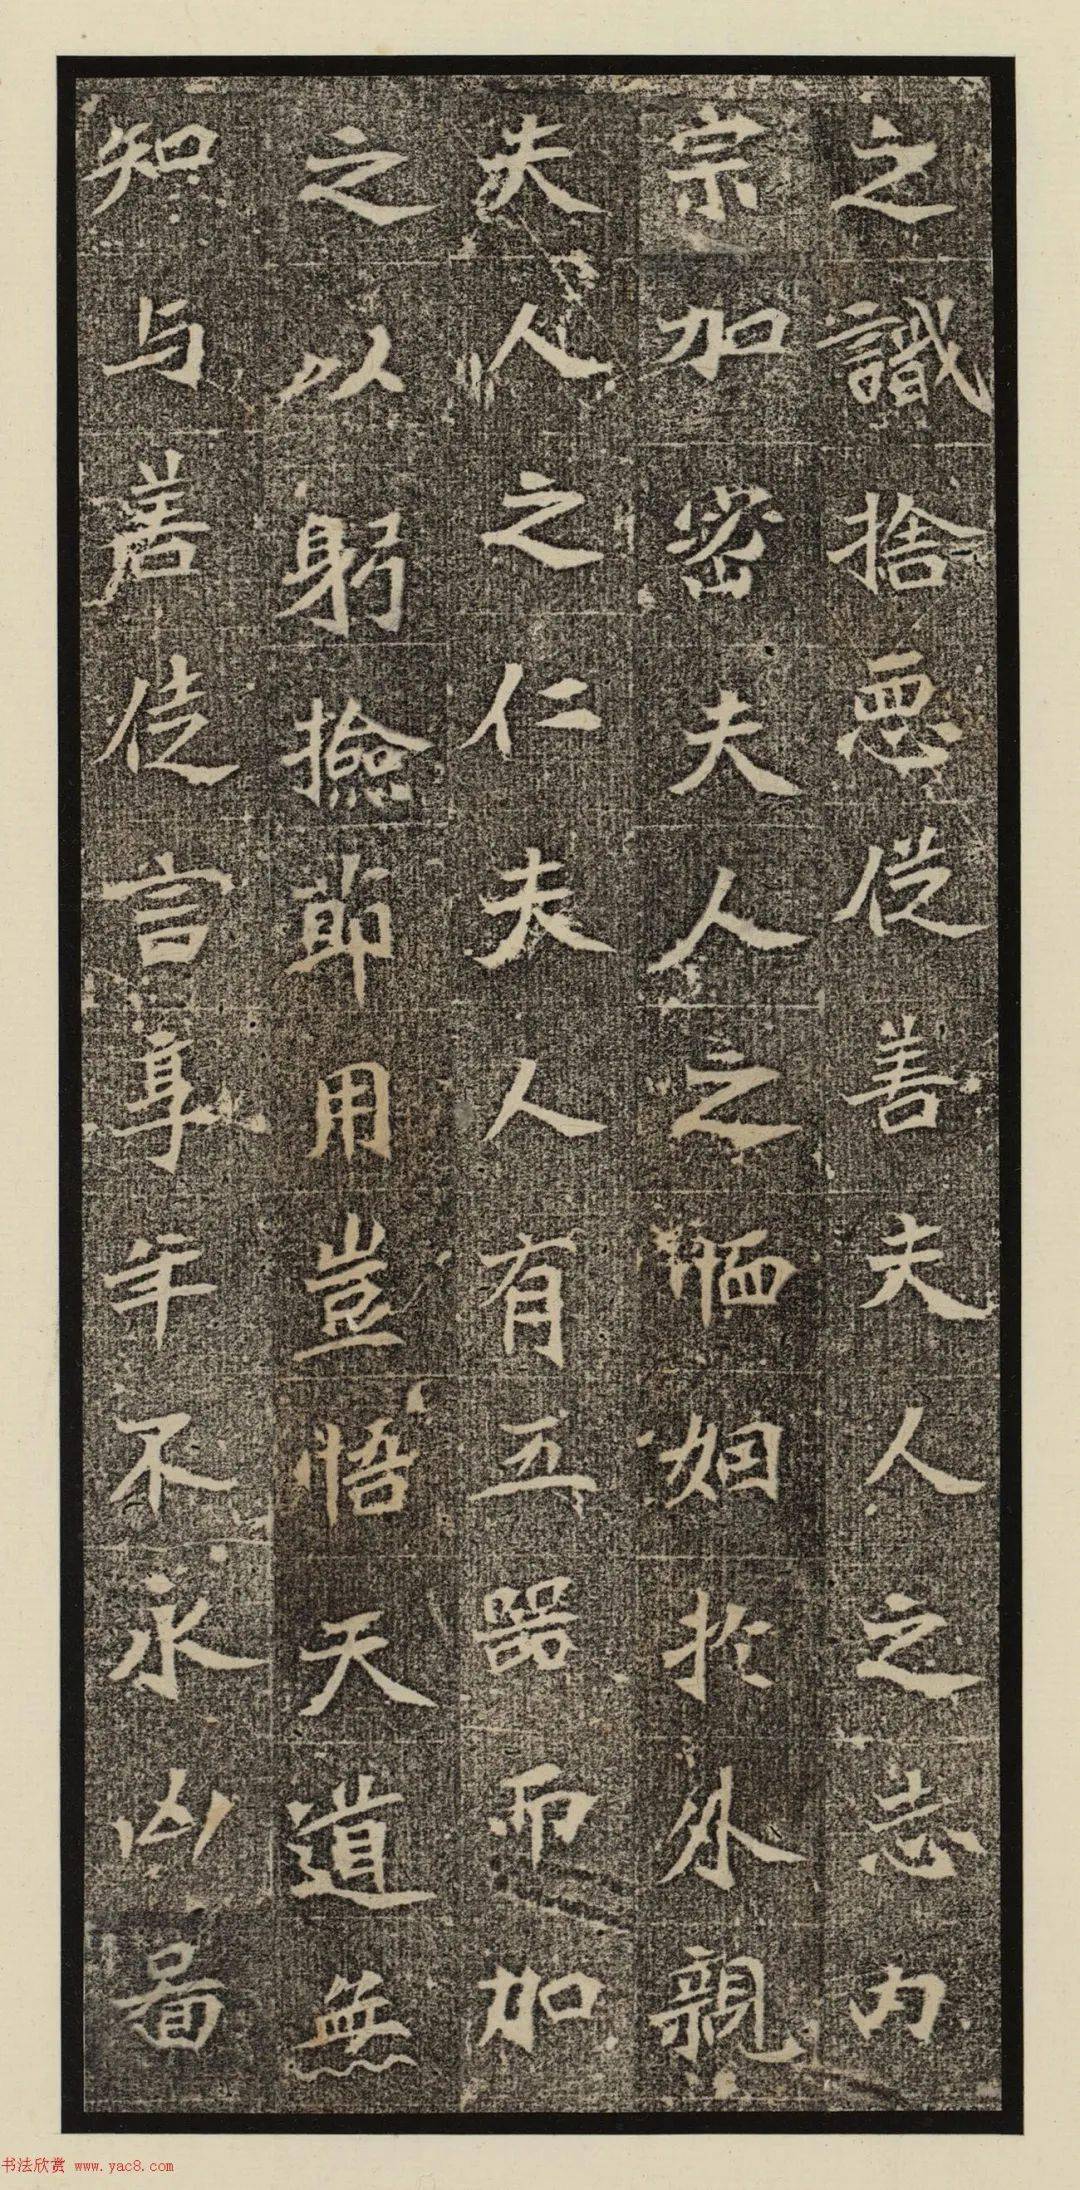 之識捨惡従善夫人之志内
宗加密夫人之恤姻於外親
夫人之仁夫人有五器而加
之以躬撿節用豈悟天道無
知与善徒言享年不永凶啚
书法欣赏 www.yac8.com